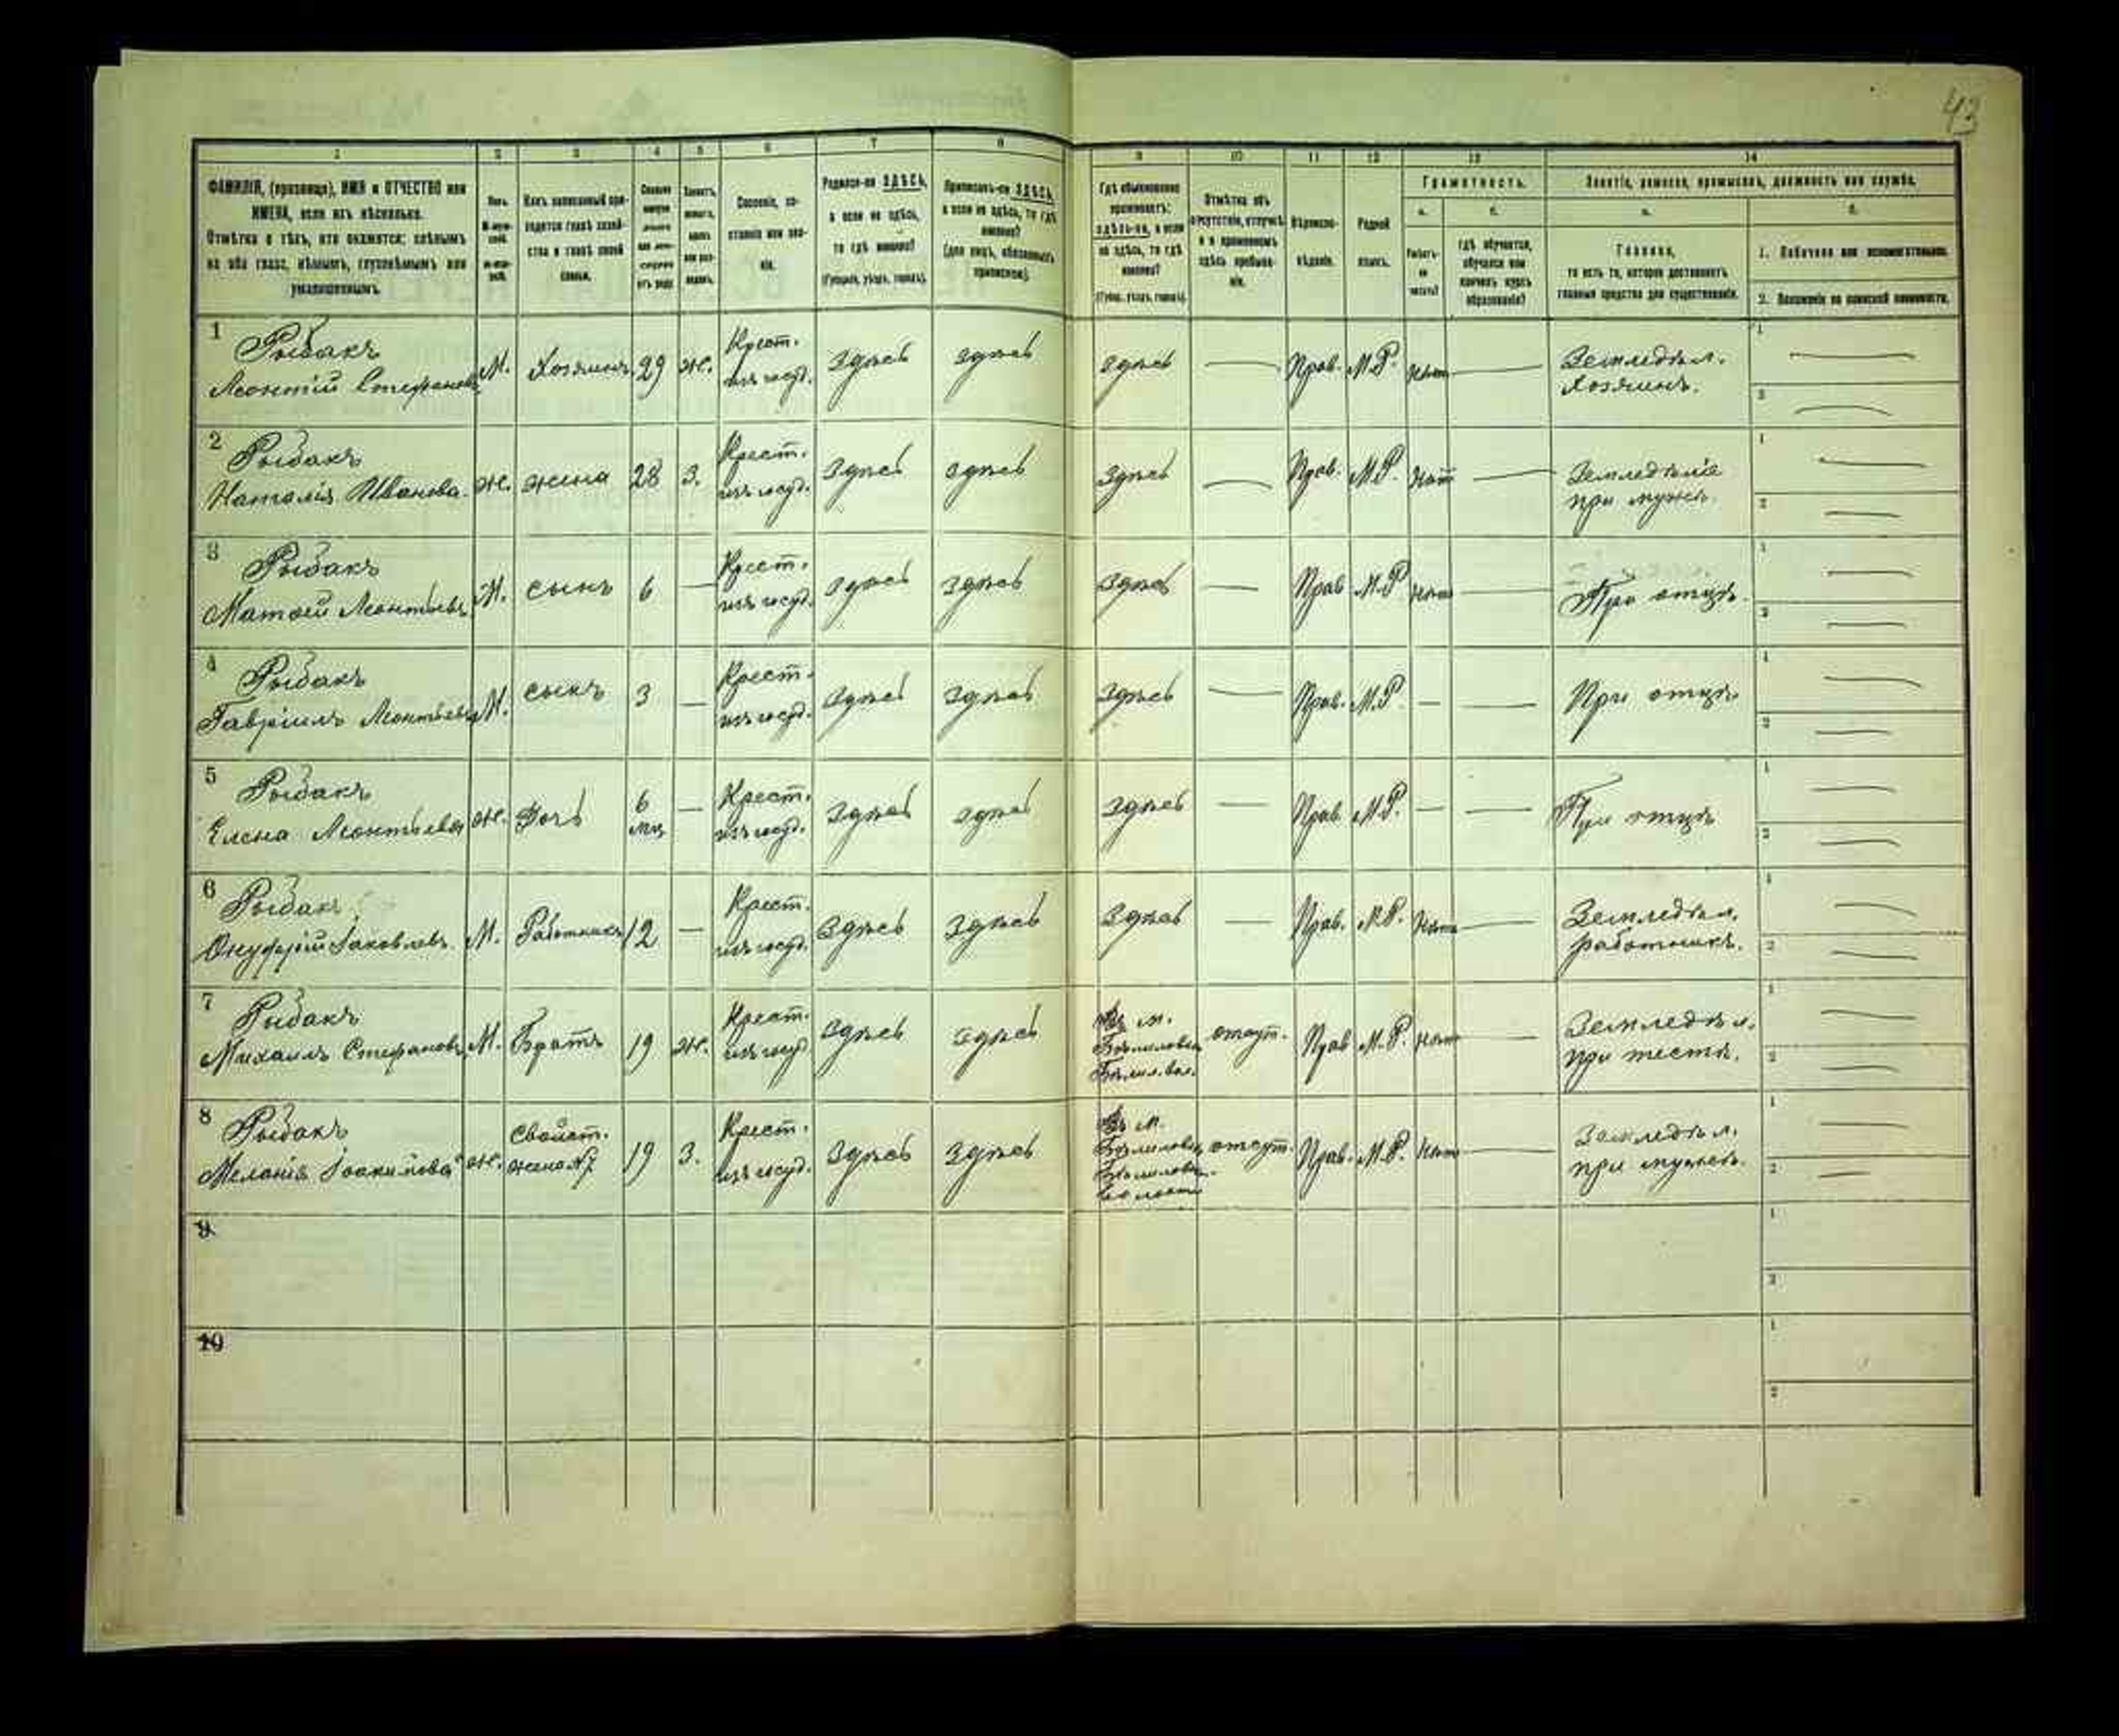 43
1 2 3 4 5 6 7 8 9 10 11 12 13 14
ФАМИЛІЯ, (прозвище), ИМЯ и ОТЧЕСТВО или
ИМЕНА, если ихъ нѣсколько.
Отмѣтка о тѣхъ, кто окажется: слѣпымъ
на оба глаза, нѣмымъ, глухонѣмымъ или
умалишеннымъ.
Полъ.
Какъ записанный при-
ходится главѣ хозяй-
ства и главѣ своей
семьи.
Сословіе, со-
стояніе или зва-
ніе.
Родился-ли ЗДѢСЬ,
а если не здѣсь,
то гдѣ именно?
(Губернія, уѣздъ, городъ).
Приписанъ-ли ЗДѢСЬ,
а если не здѣсь, то гдѣ
именно?
(для лицъ, обязанныхъ
припискою).
Гдѣ обыкновенно
проживаетъ:
здѣсь-ли, а если
не здѣсь, то гдѣ
именно?
(Губерн., уѣздъ, городъ).
Отмѣтка объ
отсутствіи, отлучкѣ
и о временномъ
здѣсь пребыва-
ніи.
Вѣроиспо-
вѣданіе.
Родной
языкъ.
Грамотность.
а.
Умѣетъ-
ли
читать?
б.
гдѣ обучается,
обучался или
кончилъ курсъ
образованія?
Занятіе, ремесло, промыселъ, должность или служба.
а.
Главное,
то есть то, которое доставляетъ
главныя средства для существованія.
б.
1. Побочное или вспомогательное.
2. Положеніе по воинской повинности.
1 Рыбакъ
Леонтій Стефановъ М. Хозяинъ 29 ж. Крест. изъ госуд. здѣсь здѣсь здѣсь — Прав. М.Р. нѣтъ — Земледѣл. хозяинъ. 1 — 2 —
2 Рыбакъ
Наталія Иванова ж. жена 28 з. Крест. изъ госуд. здѣсь здѣсь здѣсь — Прав. М.Р. нѣтъ — Земледѣліе при мужѣ. 1 — 2 —
3 Рыбакъ
Матѳей Леонтьевъ М. сынъ 6 — Крест. изъ госуд. здѣсь здѣсь здѣсь — Прав М.Р нѣтъ — При отцѣ. 1 — 2 —
4 Рыбакъ
Гавріилъ Леонтьевъ М. сынъ 3 — Крест. изъ госуд. здѣсь здѣсь здѣсь — Прав. М.Р. — — При отцѣ 1 — 2 —
5 Рыбакъ
Елена Леонтьева ж. Дочь 6 мѣс — Крест. изъ госуд. здѣсь здѣсь здѣсь — Прав. М.Р. — — При отцѣ 1 — 2 —
6 Рыбакъ
Онуфрій Іаковлевъ М. Работникъ 12 — Крест. изъ госуд. здѣсь здѣсь здѣсь — Прав. М.Р. нѣтъ — Земледѣл. работникъ. 1 — 2 —
7 Рыбакъ
Михаилъ Стефановъ М. Братъ 19 ж. Крест. изъ госуд здѣсь здѣсь Въ м. отсут. Прав М.Р. нѣтъ — Земледѣл. при тестѣ. 1 — 2 —
8 Рыбакъ
Меланія Іоакимова ж. Свойст. жена №7 19 з. Крест. изъ госуд. здѣсь здѣсь Въ м. отсут. Прав. М.Р. нѣтъ — Земледѣл. при мужѣ. 1 — 2 —
9 1 2
10 1 2